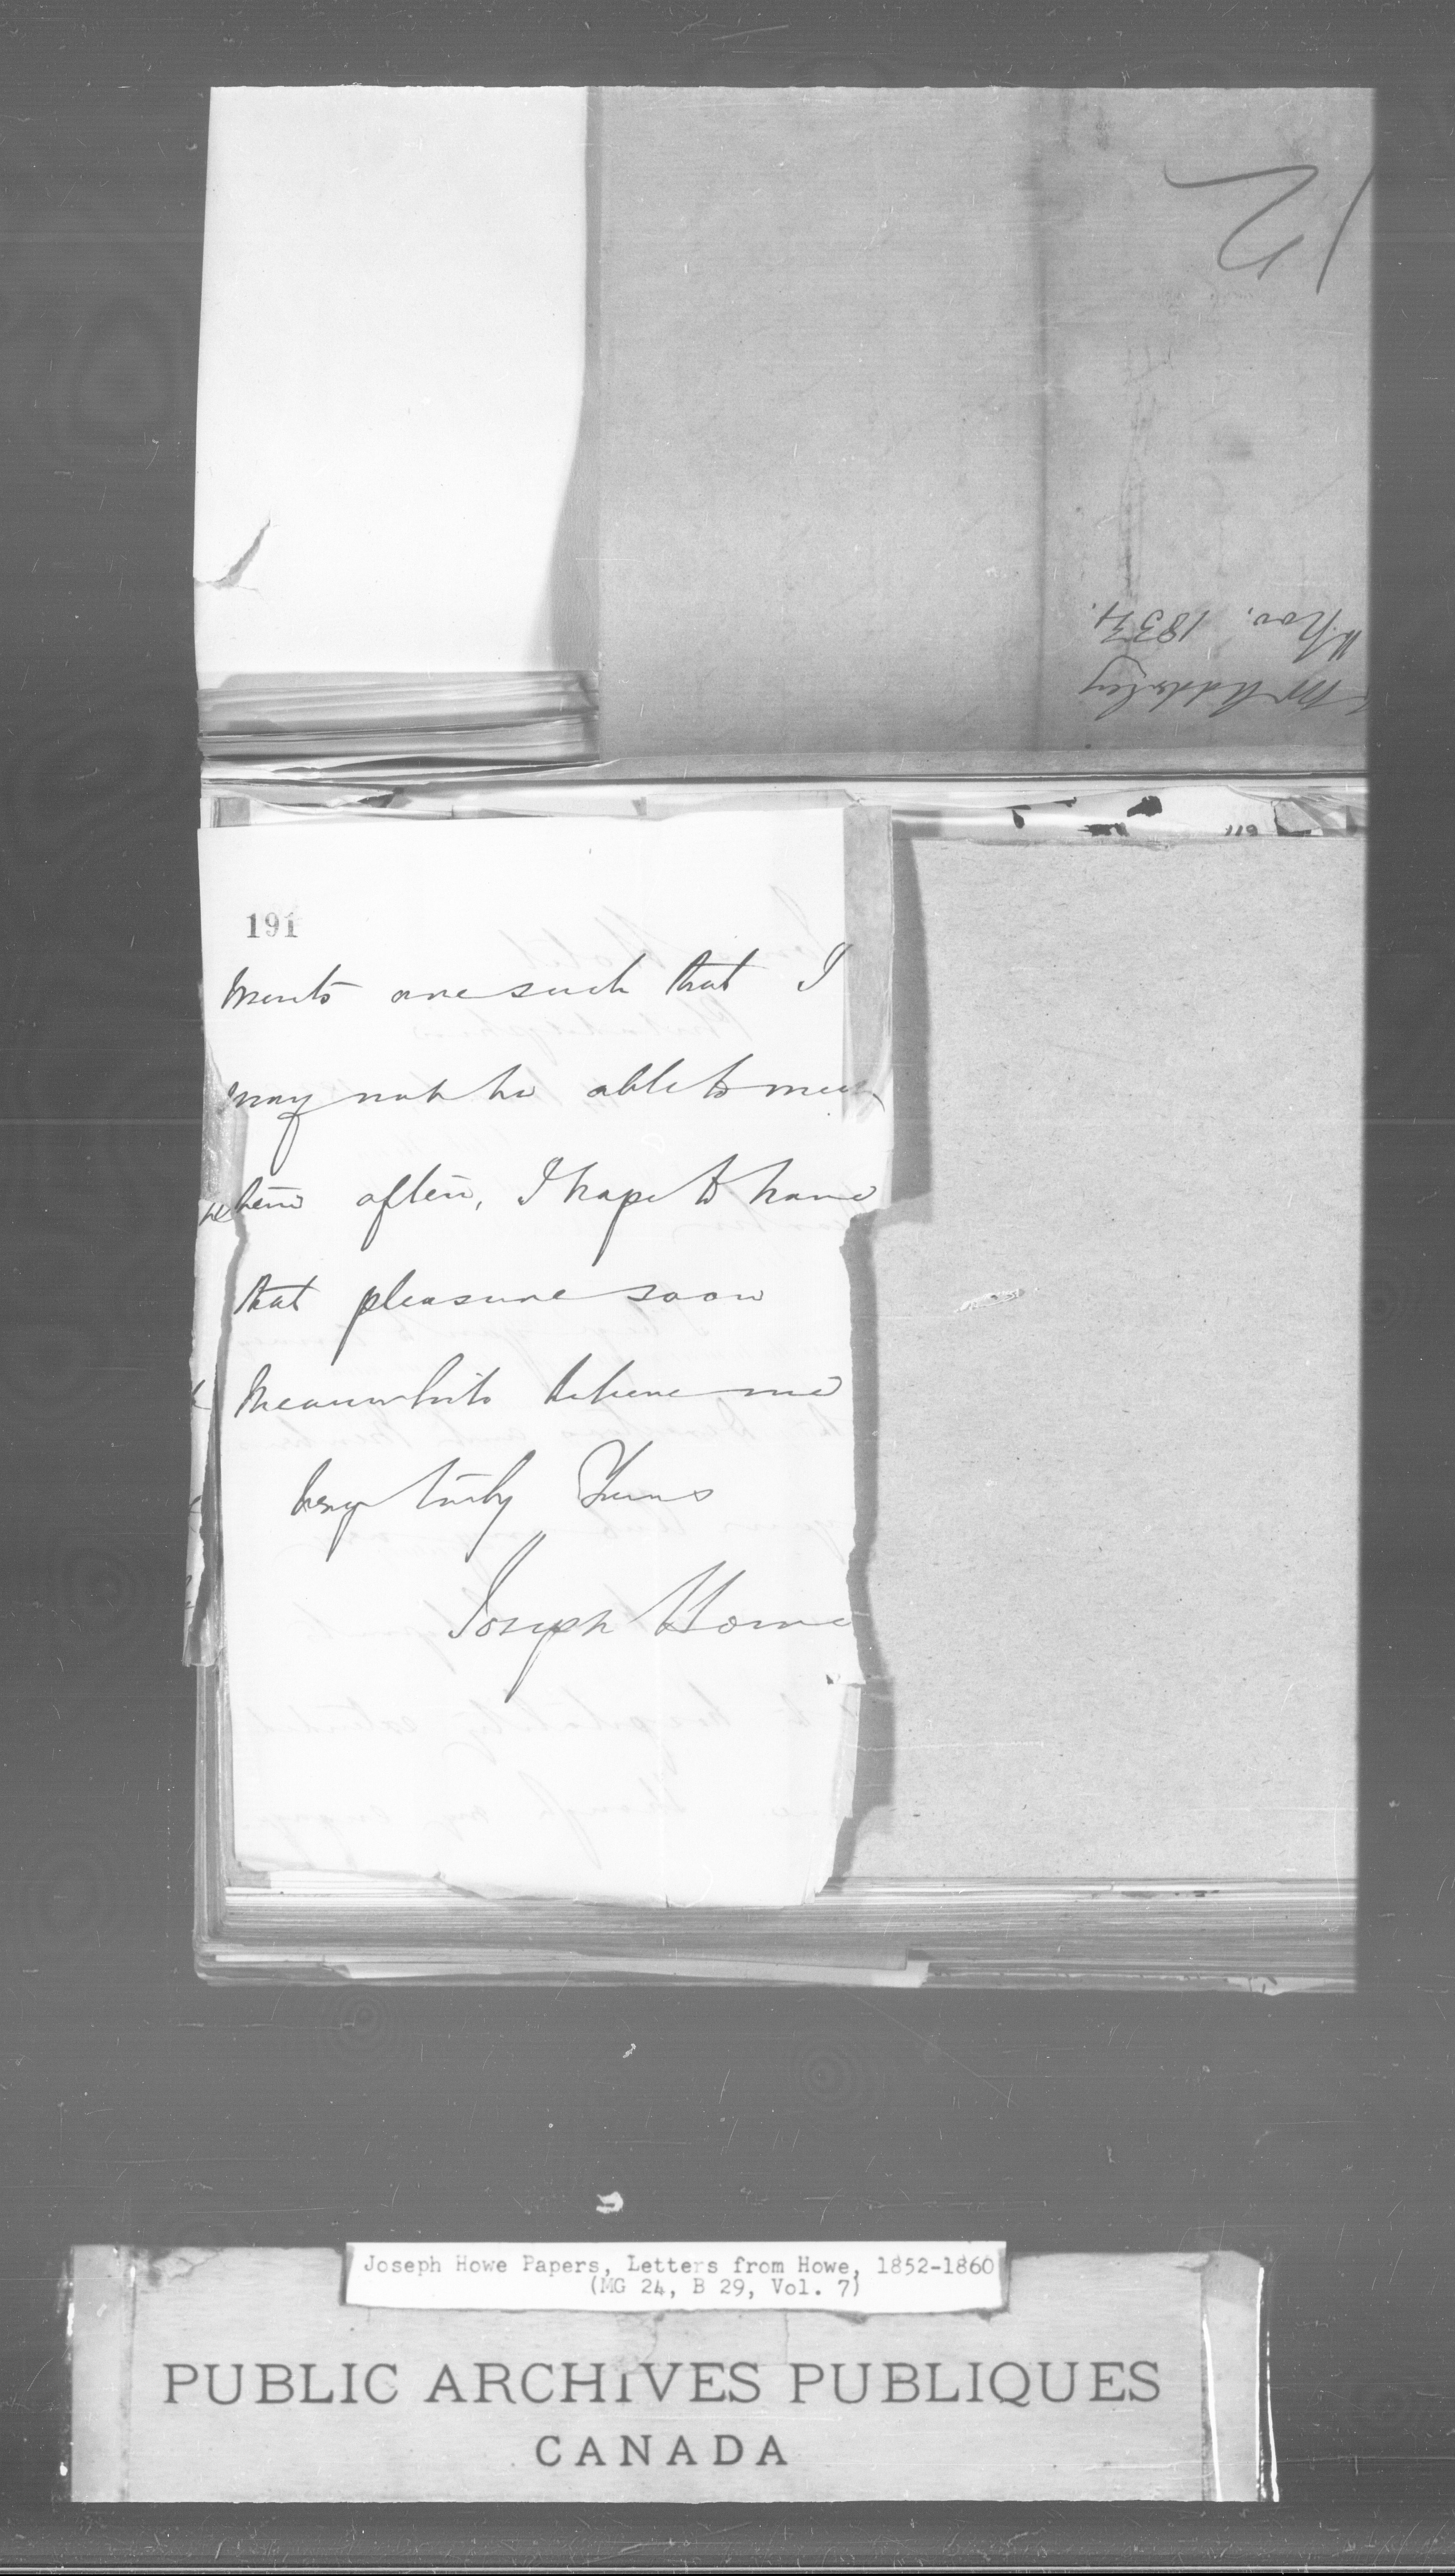 12
Mr Adderley
Nov. 1834.
119
191
ments are such that I
may not be able to meet
them often, I hope to have
that pleasure soon
Meanwhile believe me
Very truly Yours
Joseph Howe
Joseph Howe Papers, Letters from Howe, 1852-1860
(MG 24, B 29, Vol. 7)
PUBLIC ARCHIVES PUBLIQUES
CANADA